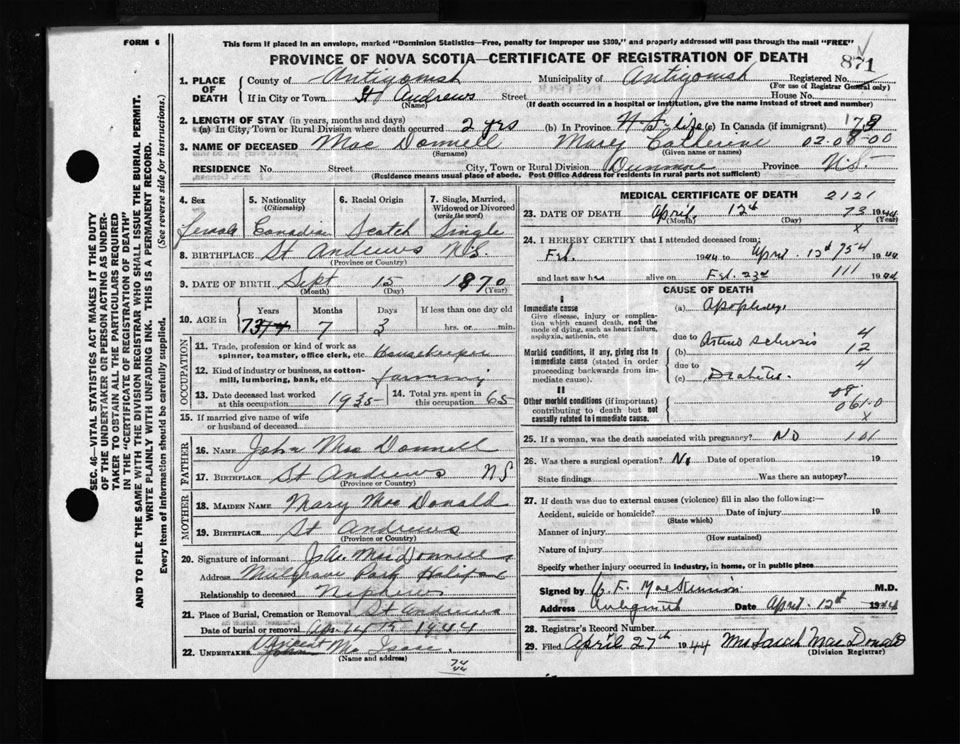 FORM 6
This form if placed in an envelope, marked "Dominion Statistics—Free, penalty for improper use $300," and properly addressed will pass through the mail "FREE"
PROVINCE OF NOVA SCOTIA—CERTIFICATE OF REGISTRATION OF DEATH
871
1. PLACE OF DEATH County of Antigonish Municipality of Antigonish Registered No.
(For use of Registrar General only)
If in City or Town St Andrews Street House No.
(If death occurred in a hospital or institution, give the name instead of street and number)
2. LENGTH OF STAY (in years, months and days)
(a) In City, Town or Rural Division where death occurred 2 yrs (b) In Province N.S. life (c) In Canada (if immigrant)
3. NAME OF DECEASED Mac Donnell Mary Catherine 02-08-00
(Surname) (Given name or names)
RESIDENCE No. Street City, Town or Rural Division Dunmore Province N.S.
(Residence means usual place of abode. Post Office Address for residents in rural parts not sufficient)
4. Sex
female
5. Nationality (Citizenship)
Canadian
6. Racial Origin
Scotch
7. Single, Married, Widowed or Divorced (write the word)
Single
8. BIRTHPLACE St Andrews N.S.
(Province or Country)
9. DATE OF BIRTH Sept 12 1870
(Month) (Day) (Year)
10. AGE in Years Months Days If less than one day old
73 7 3 hrs. or min.
OCCUPATION
11. Trade, profession or kind of work as spinner, teamster, office clerk, etc. Housekeeper
12. Kind of industry or business, as cotton-mill, lumbering, bank, etc. farming
13. Date deceased last worked at this occupation 1935 14. Total yrs. spent in this occupation 65
15. If married give name of wife or husband of deceased
FATHER
16. NAME John Mac Donnell
17. BIRTHPLACE St Andrews NS
(Province or Country)
MOTHER
18. MAIDEN NAME Mary Mac Donald
19. BIRTHPLACE St Andrews
(Province or Country)
20. Signature of informant MacDonnell
Address Mulgrave Park Halifax
Relationship to deceased Nephew
21. Place of Burial, Cremation or Removal St Andrews
Date of burial or removal Apr 15 1944
22. UNDERTAKER Vincent Mc Isaac
(Name and address)
MEDICAL CERTIFICATE OF DEATH 2121
23. DATE OF DEATH April 12th 73 1944
(Month) (Day) (Year)
24. I HEREBY CERTIFY that I attended deceased from
Feb. 1944 to April 12th 754 1944
and last saw her alive on Feb. 23d 111 1944
CAUSE OF DEATH
I
Immediate cause
Give disease, injury or complication which caused death, not the mode of dying, such as heart failure, asphyxia, asthenia, etc
(a) Apoplexy
due to
Morbid conditions, if any, giving rise to immediate cause (stated in order proceeding backwards from immediate cause).
(b) Arterio sclerosis 4
12
due to 4
(c) Diabetes
II
Other morbid conditions (if important) contributing to death but not causally related to immediate cause.
08
061-0
x
25. If a woman, was the death associated with pregnancy? NO 101
26. Was there a surgical operation? No Date of operation 19
State findings Was there an autopsy?
27. If death was due to external causes (violence) fill in also the following:—
Accident, suicide or homicide? Date of injury 19
(State which)
Manner of injury
(How sustained)
Nature of injury
Specify whether injury occurred in industry, in home, or in public place
Signed by M.D.
Address Antigonish Date April 12th 1944
28. Registrar's Record Number
29. Filed April 27th 1944 Mrs Sarah Mac Donald
(Division Registrar)
74
44
SEC. 46—VITAL STATISTICS ACT MAKES IT THE DUTY
OF THE UNDERTAKER OR PERSON ACTING AS UNDER-
TAKER TO OBTAIN ALL THE PARTICULARS REQUIRED
IN THE "CERTIFICATE OF REGISTRATION OF DEATH"
AND TO FILE THE SAME WITH THE DIVISION REGISTRAR WHO SHALL ISSUE THE BURIAL PERMIT.
WRITE PLAINLY WITH UNFADING INK. THIS IS A PERMANENT RECORD.
Every item of information should be carefully supplied. (See reverse side for instructions.)